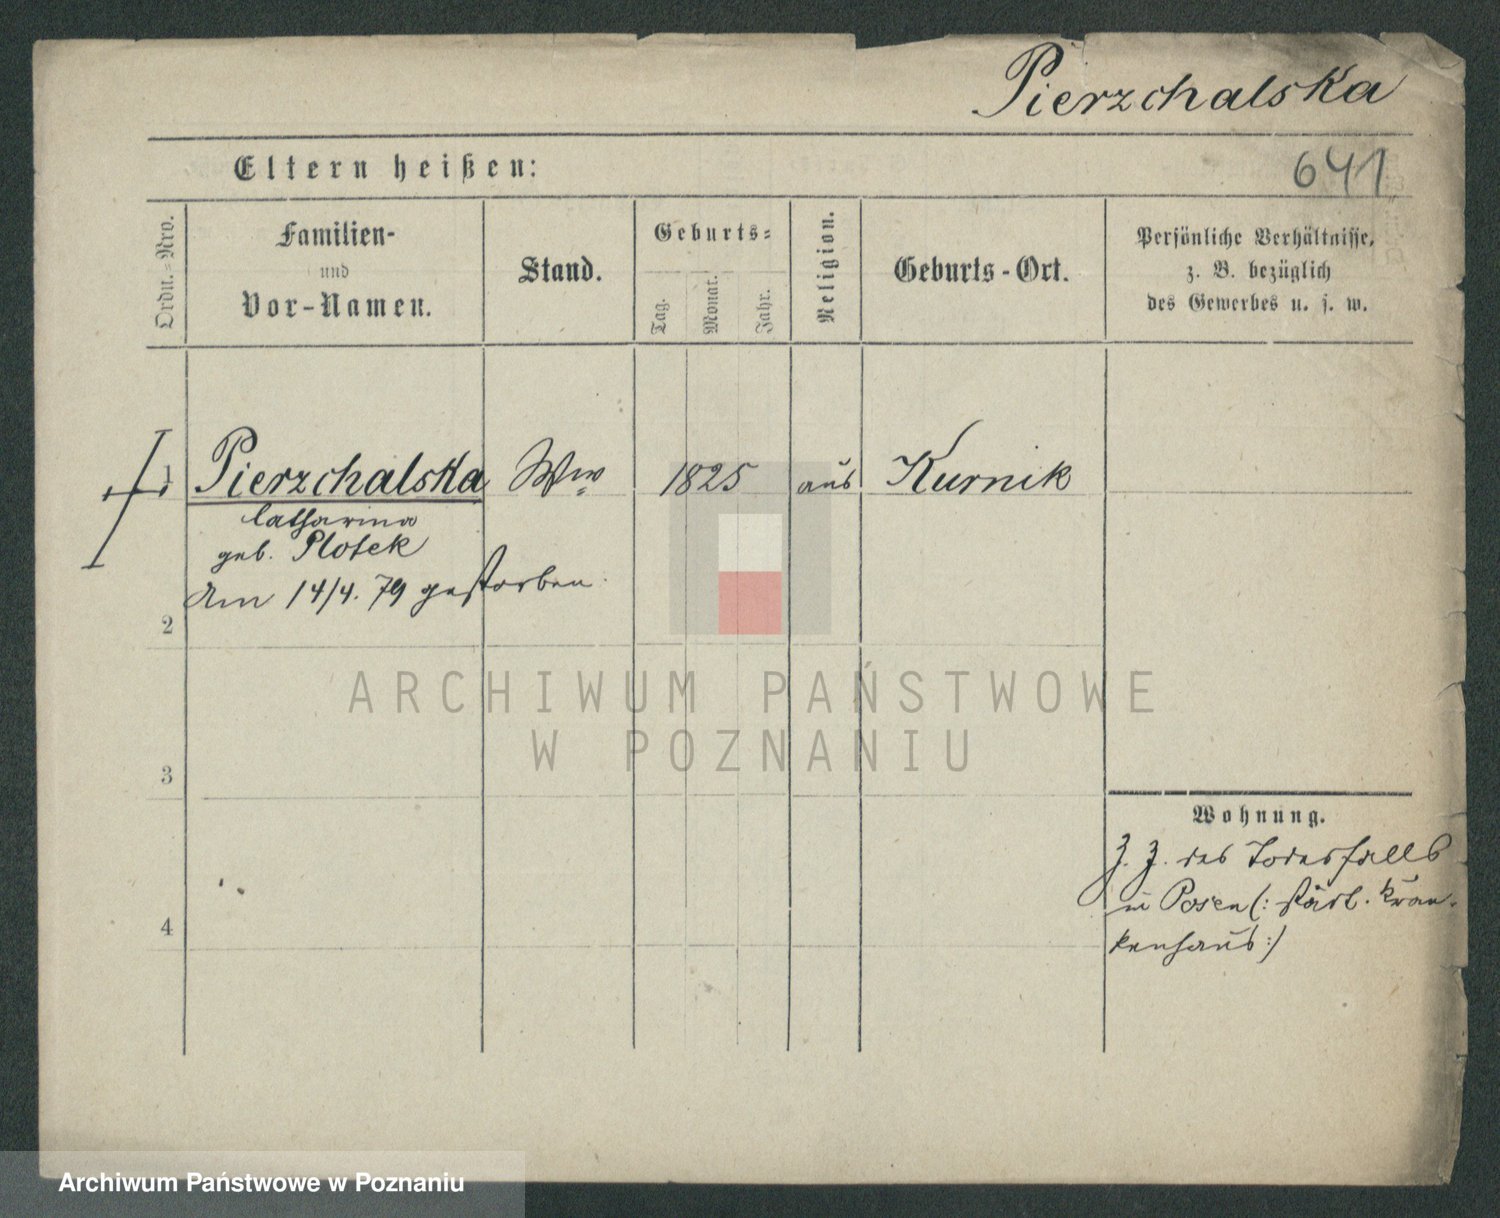 Pierzchalska
Eltern heißen:
641
Ordn.-Nro.
Familien-
und
Vor-Namen.
Stand.
Geburts-
Tag.
Monat.
Jahr.
Religion.
Geburts-Ort.
Persönliche Verhältnisse,
z. B. bezüglich
des Gewerbes u. s. w.
1 Pierzchalska Ww 1825 aus Kurnik
Catharina
geb. Plotek
Am 14/4. 79 gestorben.
2
ARCHIWUM PAŃSTWOWE
W POZNANIU
3
Wohnung.
Z. Z. des Todesfalls
in Posen (: städt. Kran-
kenhaus :)
4
Archiwum Państwowe w Poznaniu